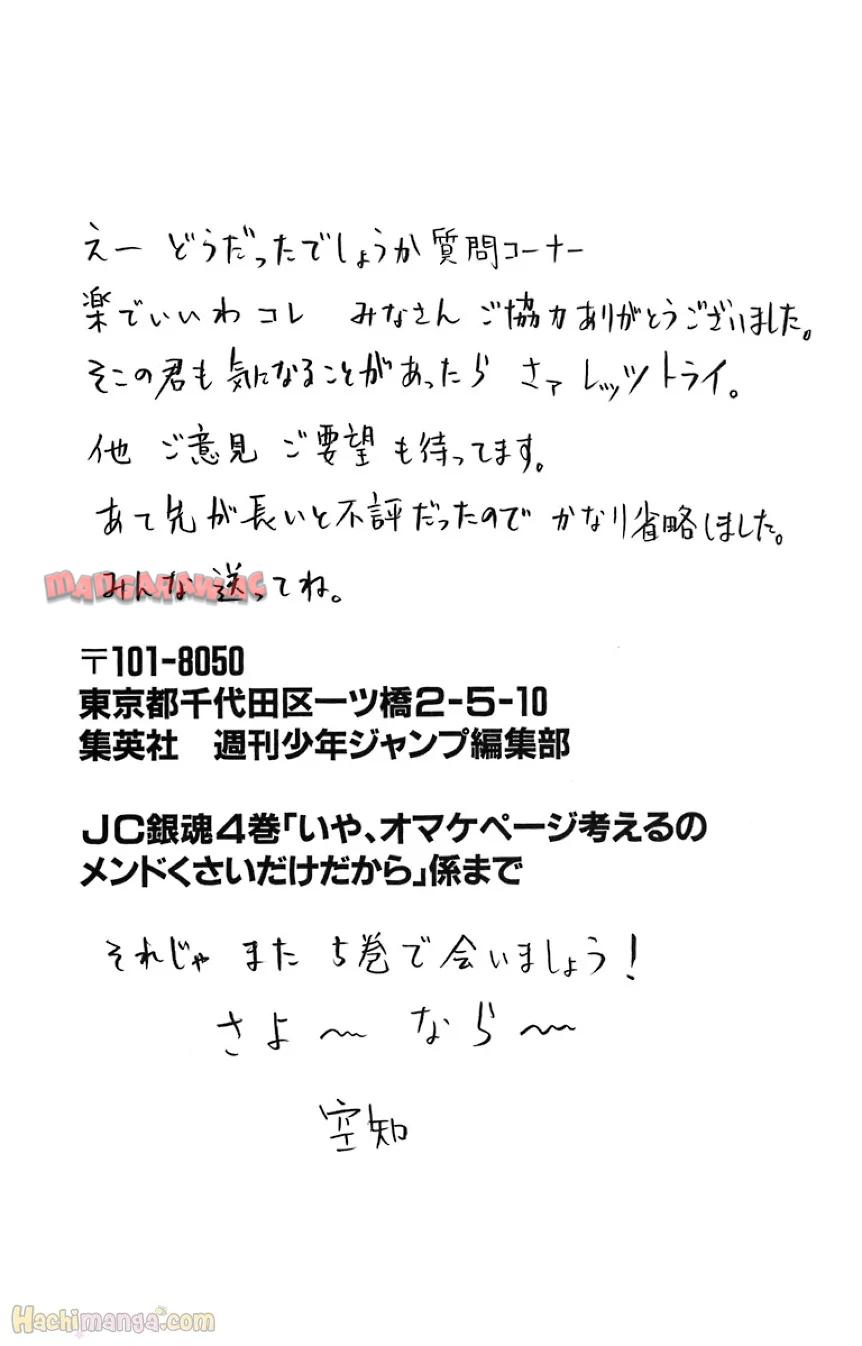 えー どうだったでしょうか質問コーナー
楽でいいわコレ みなさんご協力ありがとうございました。
そこの君も気になることがあったら さァ レッツトライ。
他 ご意見 ご要望も待ってます。
あて先が長いと不評だったので かなり省略しました。
みんな送ってね。
MANGARAWJAC
〒101-8050
東京都千代田区一ツ橋2-5-10
集英社 週刊少年ジャンプ編集部
JC銀魂4巻「いや、オマケページ考えるの
メンドくさいだけだから」係まで
それじゃ また 5巻で会いましょう!
さよ〜 なら〜
空知
Hachimanga.com